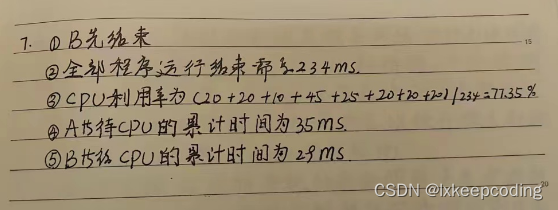 7. ①B先结束
15
②全部程序运行结束都是234ms.
③CPU利用率为(20+20+10+45+25+20+20+20)/234=77.35%
④A等待CPU的累计时间为35ms.
⑤B等待CPU的累计时间为29ms.
20
CSDN @lxkeepcoding